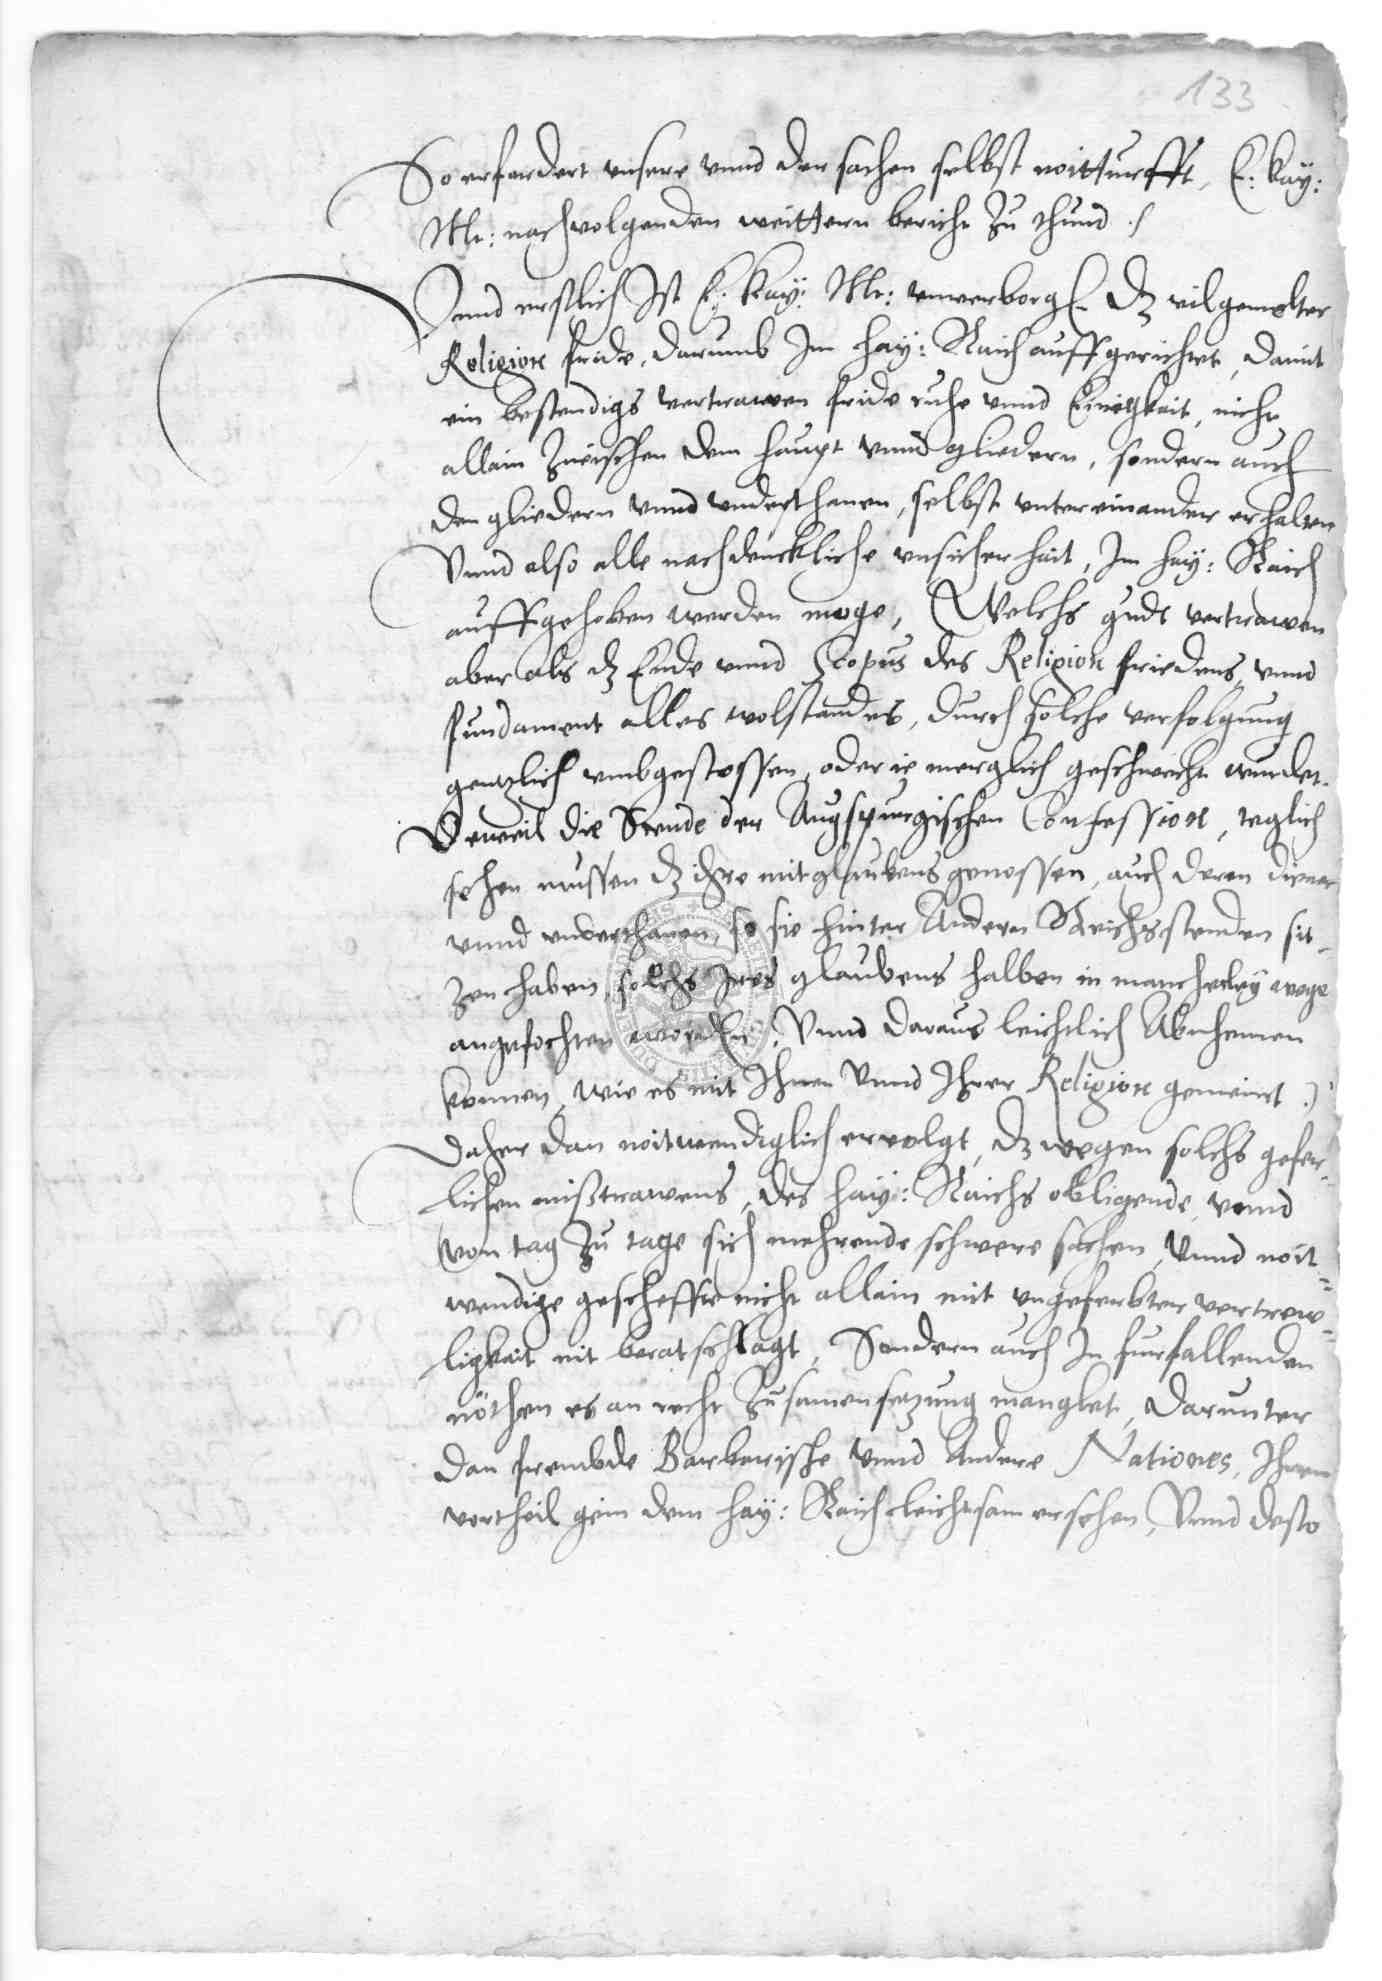 133
So erfordert unsere unnd der sachen selbst noitturfft, E: kay:
Mt: nachvolgenden weittern bericht zu thund ./
Unnd erstlich Ist E: Kay: Mt: unverborgen dz vilgemelter
Religion fride, darumb Im hay: Raich auffgerichtet, damit
ein bestendigs vertrawen fride ruhe unnd Einigkait, nicht
allain zwischen dem haupt unnd gliedern, sondern auch
den gliedern unnd underthanen, selbst untereinander erhalten
Unnd also alle nachdenckliche unsicherhait, Im hay: Raich
auffgehoben werden moge, Welchs gudt vertrawen
aber als dz Ende unnd Scopus des Religion friedens, unnd
fundament alles wolstandes, durch solche verfolgung
gentzlich umbgestossen, oder ie merglich geschwecht wurdet.
Derweil die Stende der Augspurgischen Confession, teglich
sehen mussen dz ihre mitglaubens genossen, auch deren diener
unnd underthanen, so sie hinter Andern Reichsstenden sit-
zen haben, solchs Ires glaubens halben in mancherley wege
angefochten worden, Unnd daraus leichtlich Abnhemen
konnen, wie es mit Ihnen Unnd Ihrer Religion gemeint ./
Daher dan noitwendiglich ervolgt, dz wegen solchs gefer-
lichen mißtrawens, des hay: Raichs obligende, unnd
von tag zu tage sich mehrende schwere sachen, Unnd noit-
wendige gescheffte nicht allain mit ungeferbter vertrew-
ligkait nit beratschlagt, Sondern auch In furfallenden
nöthen es an recht zusamensetzung manglet, Darunter
dan frembde Barbarische unnd Andere Nationes, Ihren
vortheil gein dem hay: Raich leichtsam ersehen, Unnd desto